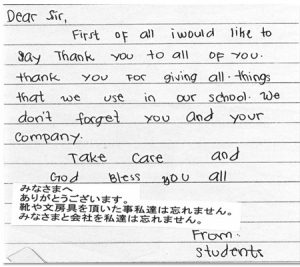 Dear Sir,
First of all iwould like to
say Thank you to all of you.
thank you for giving all. things
that we use in our school. We
don't forget you and your
company.
Take care and
God Bless you all
みなさまへ
ありがとうございます。
靴や文房具を頂いた事私達は忘れません。
みなさまと会社を私達は忘れません。
From.
students